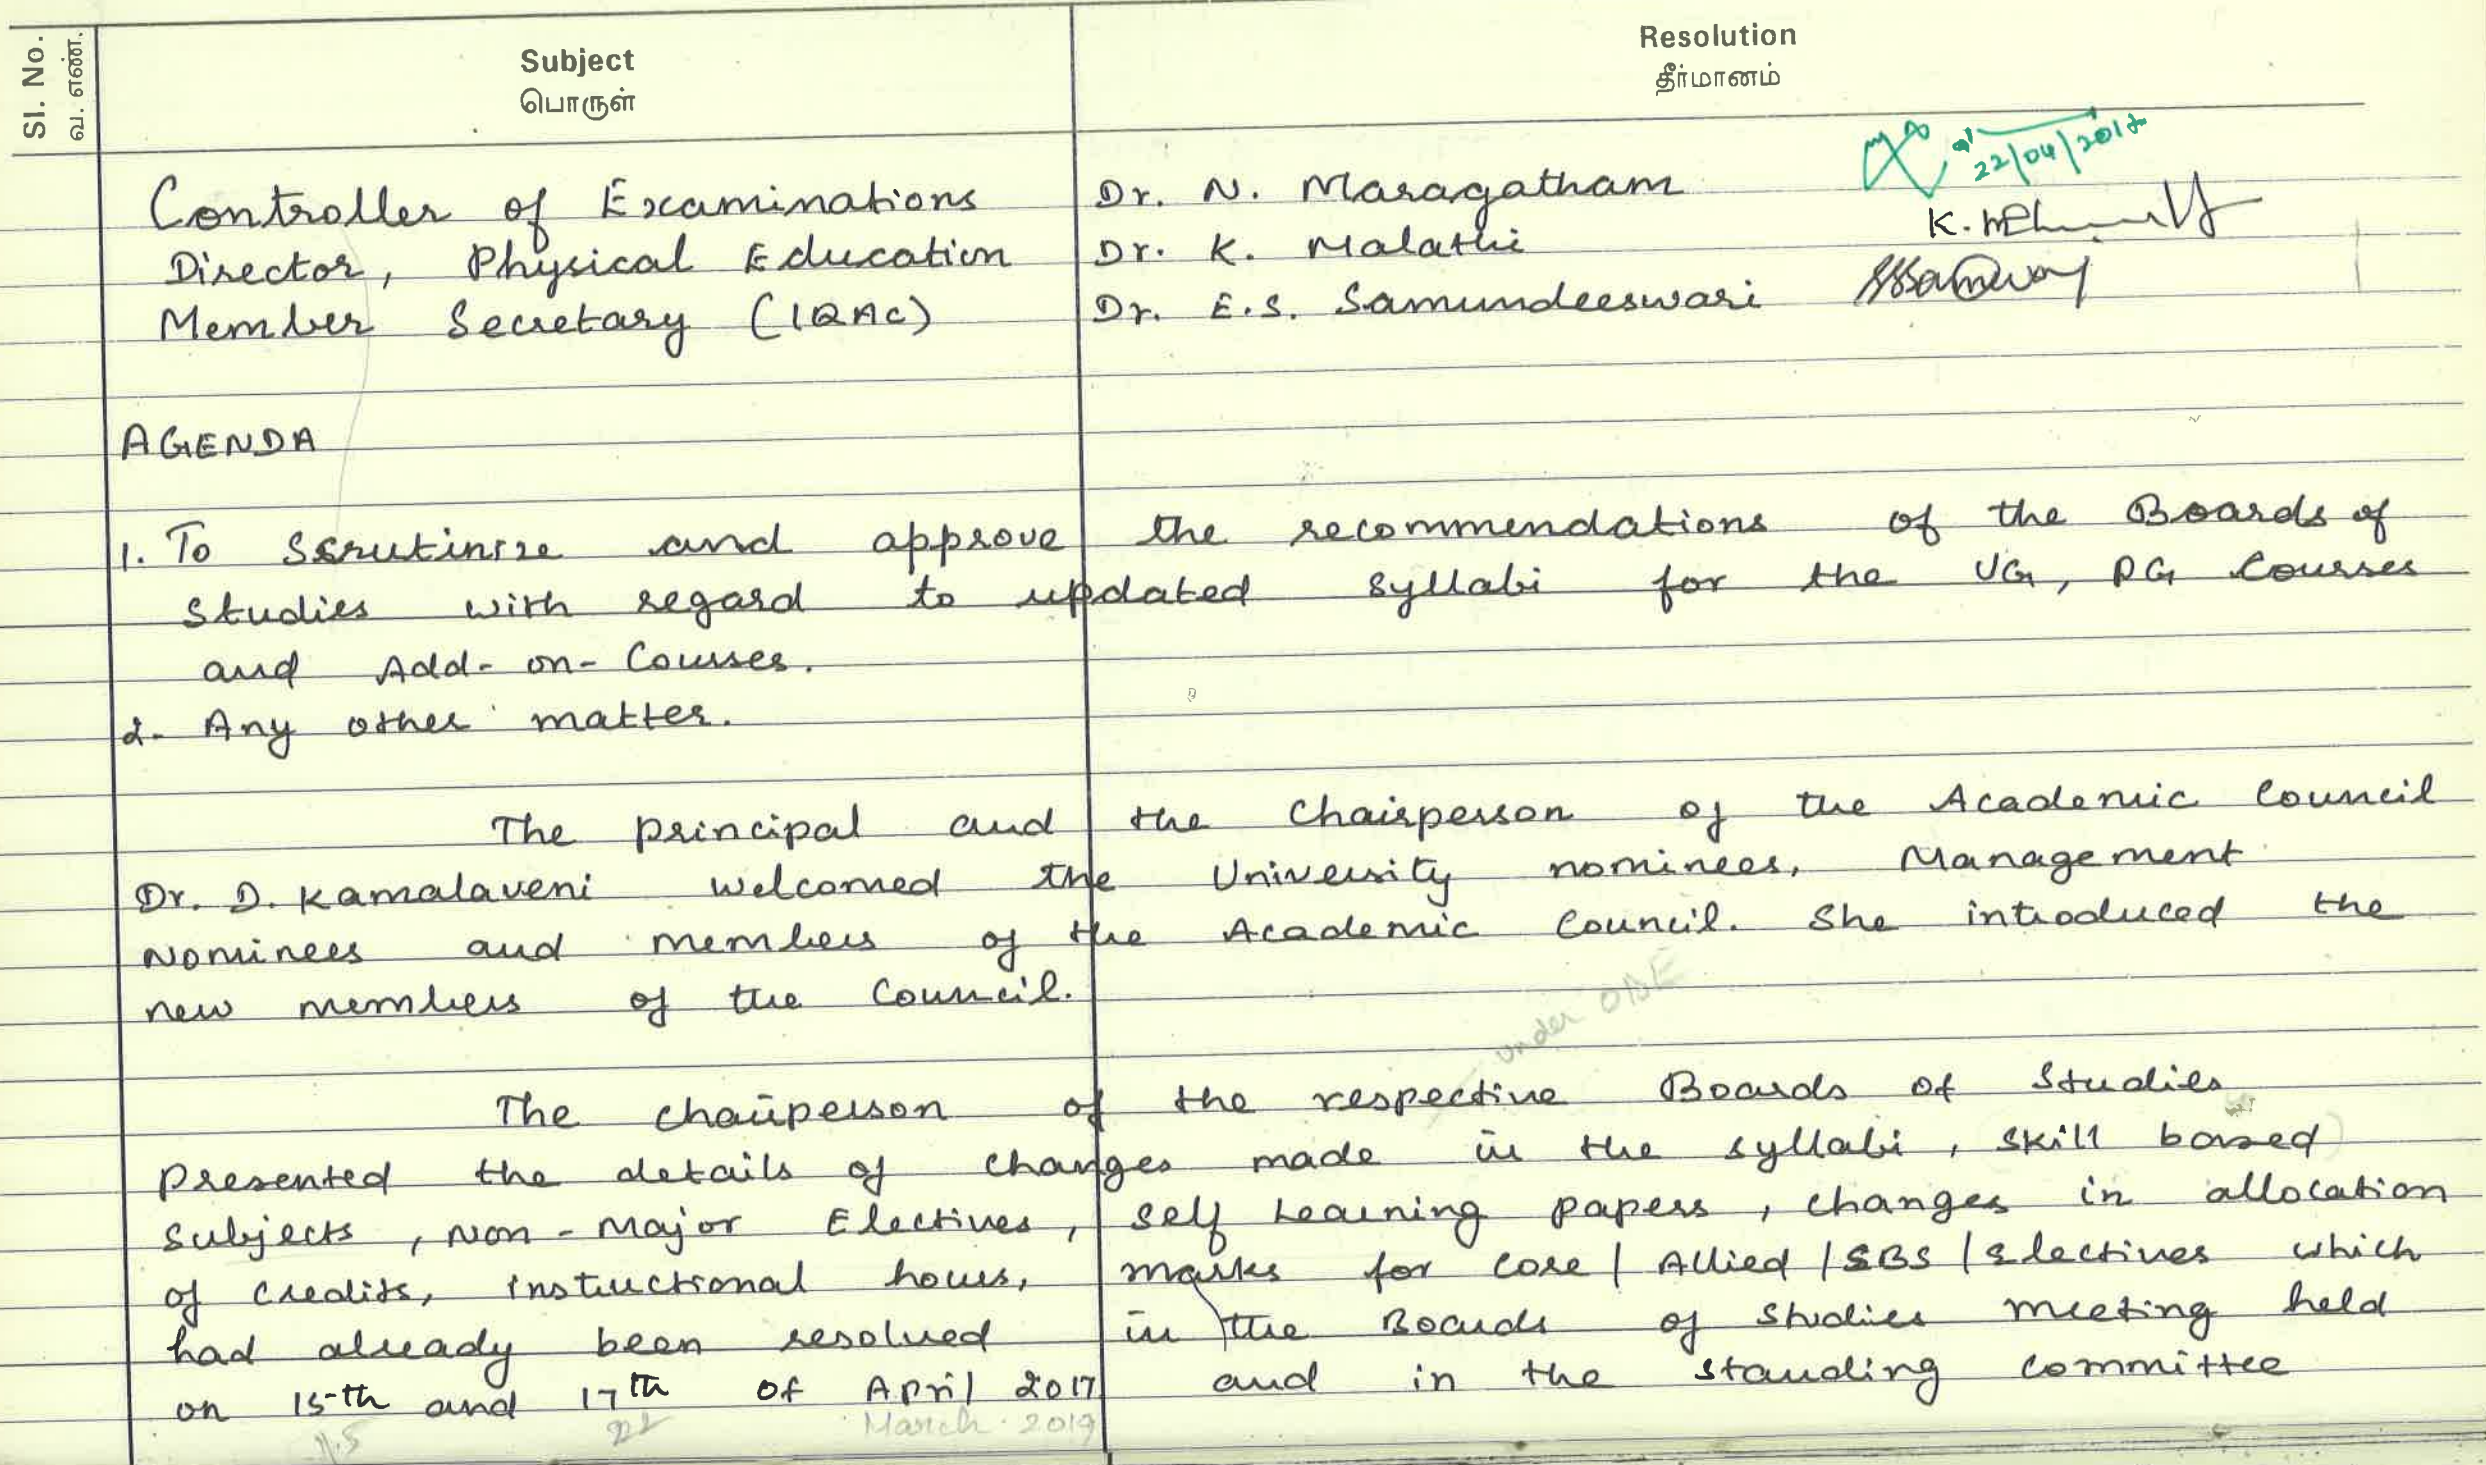 Sl. No.
வ. எண்.
Subject
பொருள்
Resolution
தீர்மானம்
22/04/2017
Controller of Examinations Dr. N. Maragatham
Director, Physical Education Dr. K. Malathi
Member Secretary (IQAC) Dr. E.S. Samundeeswari
AGENDA
1. To Scrutinize and approve the recommendations of the Boards of
Studies with regard to updated syllabi for the UG, PG Courses
and Add-on-Courses.
2. Any other matter.
The principal and the Chairperson of the Academic Council
Dr. D. Kamalaveni welcomed the University nominees, Management
Nominees and members of the Academic Council. She introduced the
new members of the Council.
under ODE
The chairperson of the respective Boards of Studies
presented the details of changes made in the syllabi, skill based
subjects, Non-Major Electives, self Learning papers, changes in allocation
of credits, instructional hours, marks for core / Allied / SBS / Electives which
had already been resolved in the Boards of studies meeting held
on 15th and 17th of April 2017 and in the standing committee
22 March 2019